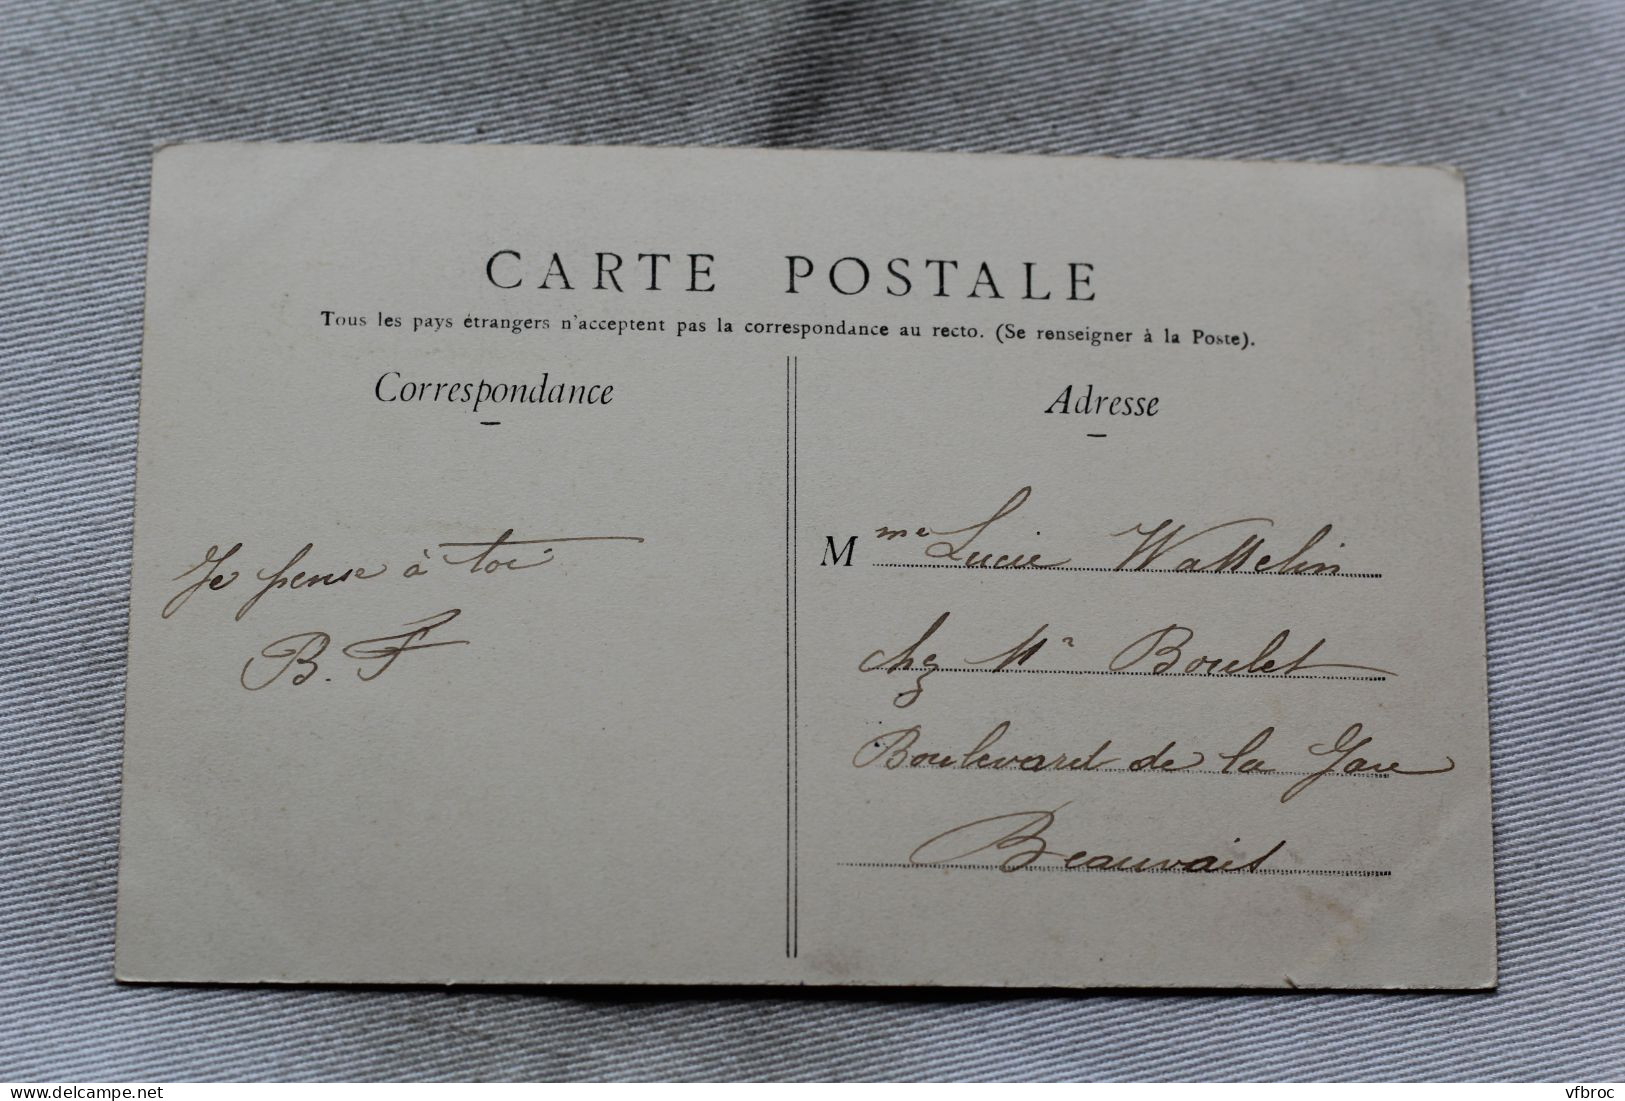 CARTE POSTALE
Tous les pays étrangers n'acceptent pas la correspondance au recto. (Se renseigner à la Poste).
Correspondance
Adresse
Je pense à toi
B. F
Mme Lucie Wattelin
chez Mr Boulet
Boulevard de la Gare
Beauvais
https://www.delcampe.net
vfbroc